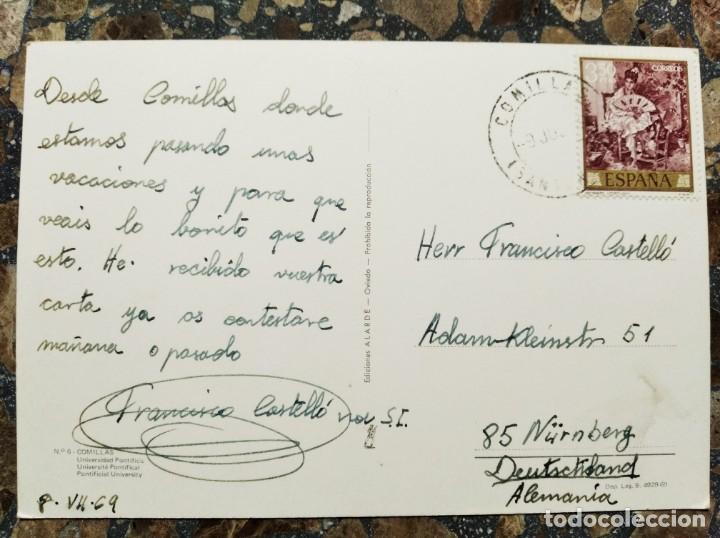 Desde Comillas donde
estamos pasando unas
vacaciones y para que
veais lo bonito que es
esto. He recibido vuestra
carta ya os contestare
mañana o pasado
Francisco Castelló S.I.
Nº 6 - COMILLAS
Universidad Pontificia
Université Pontifical
Pontificial University
8-VII-69
Ediciones ALARDE - Oviedo - Prohibida la reproducción
COMILLAS
(SANT
3'50
CORREOS
ESPAÑA
Herr Francisco Castelló
Adam-Kleinstr 51
85 Nürnberg
Deutschland
Alemania
todocoleccion